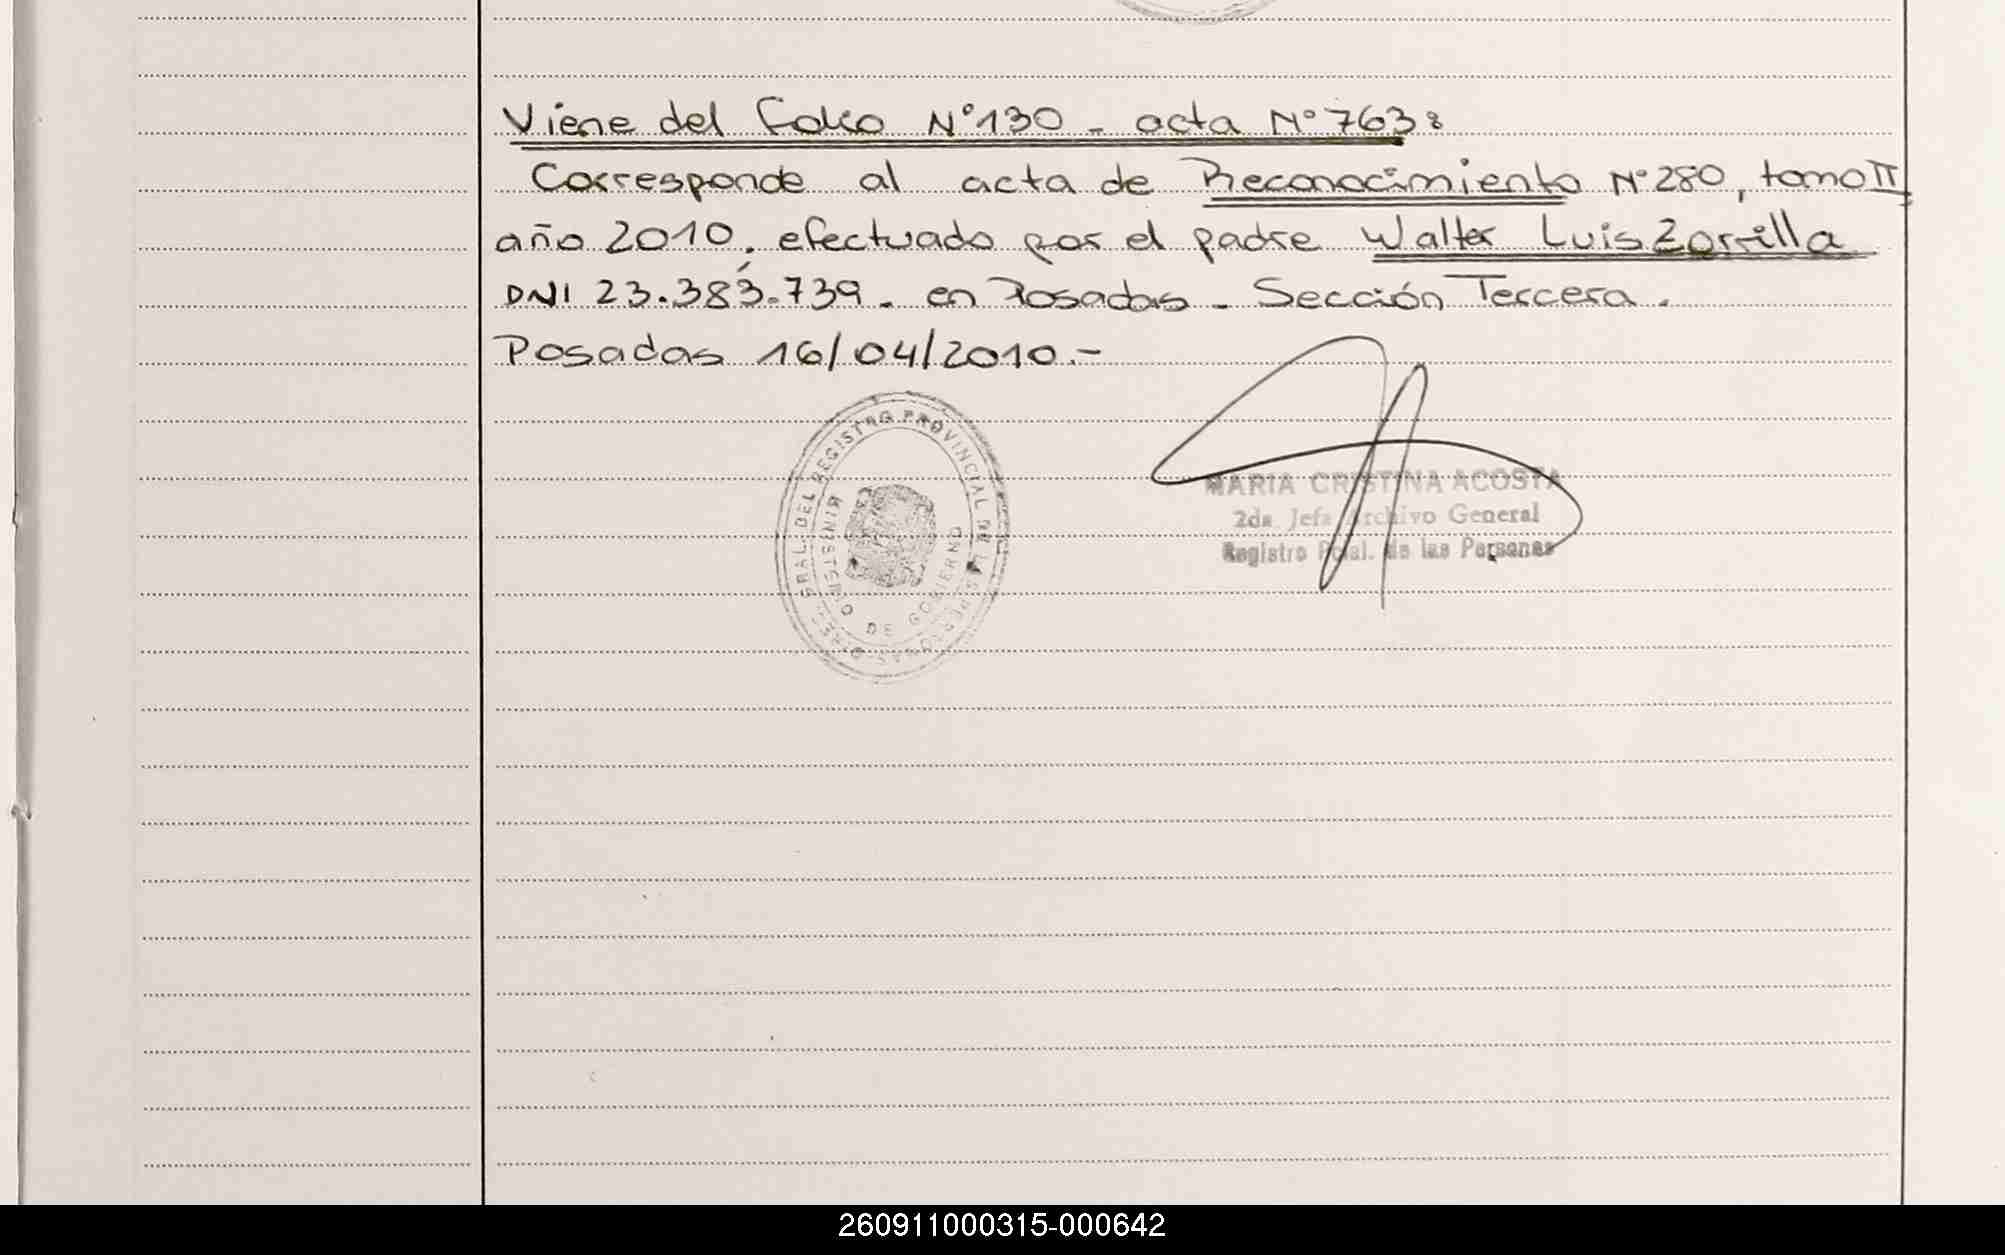 Viene del Folio N°130 - acta N°763:
Corresponde al acta de Reconocimiento N°280, tomo II,
año 2010, efectuado por el padre Walter Luis Zorrilla
DNI 23.383.739. en Posadas - Sección Tercera.
Posadas 16/04/2010.-
DIREC. GRAL. DEL REGISTRO PROVINCIAL DE LAS PERSONAS
MINISTERIO DE GOBIERNO
MARIA CRISTINA ACOSTA
2da. Jefa Archivo General
Registro Pcial. de las Personas
260911000315-000642